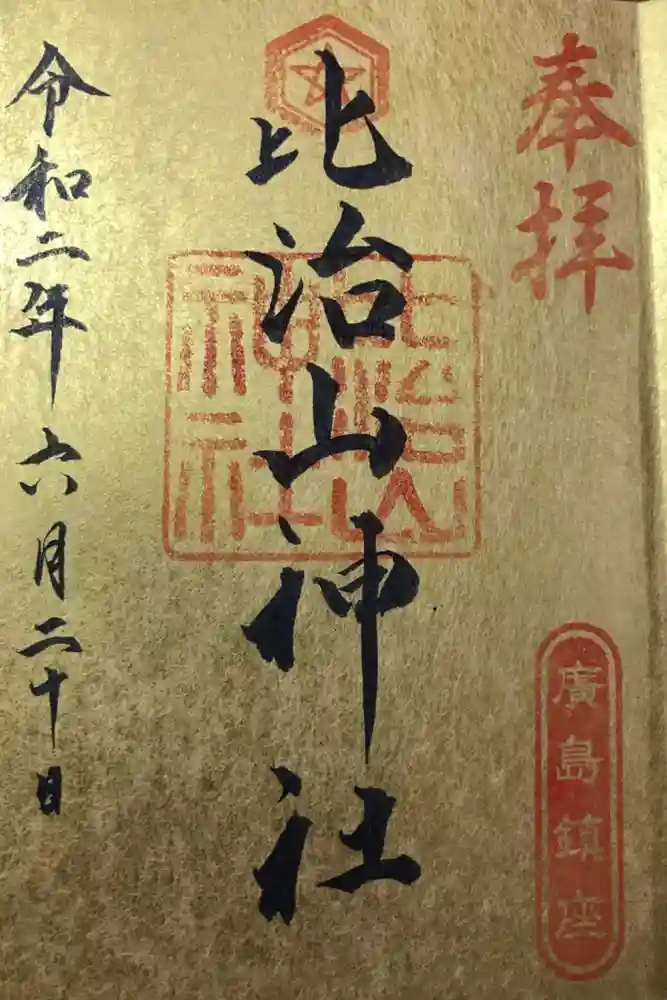 奉拝
廣島鎮座
比治山神社
比治山神社
令和二年六月二十日